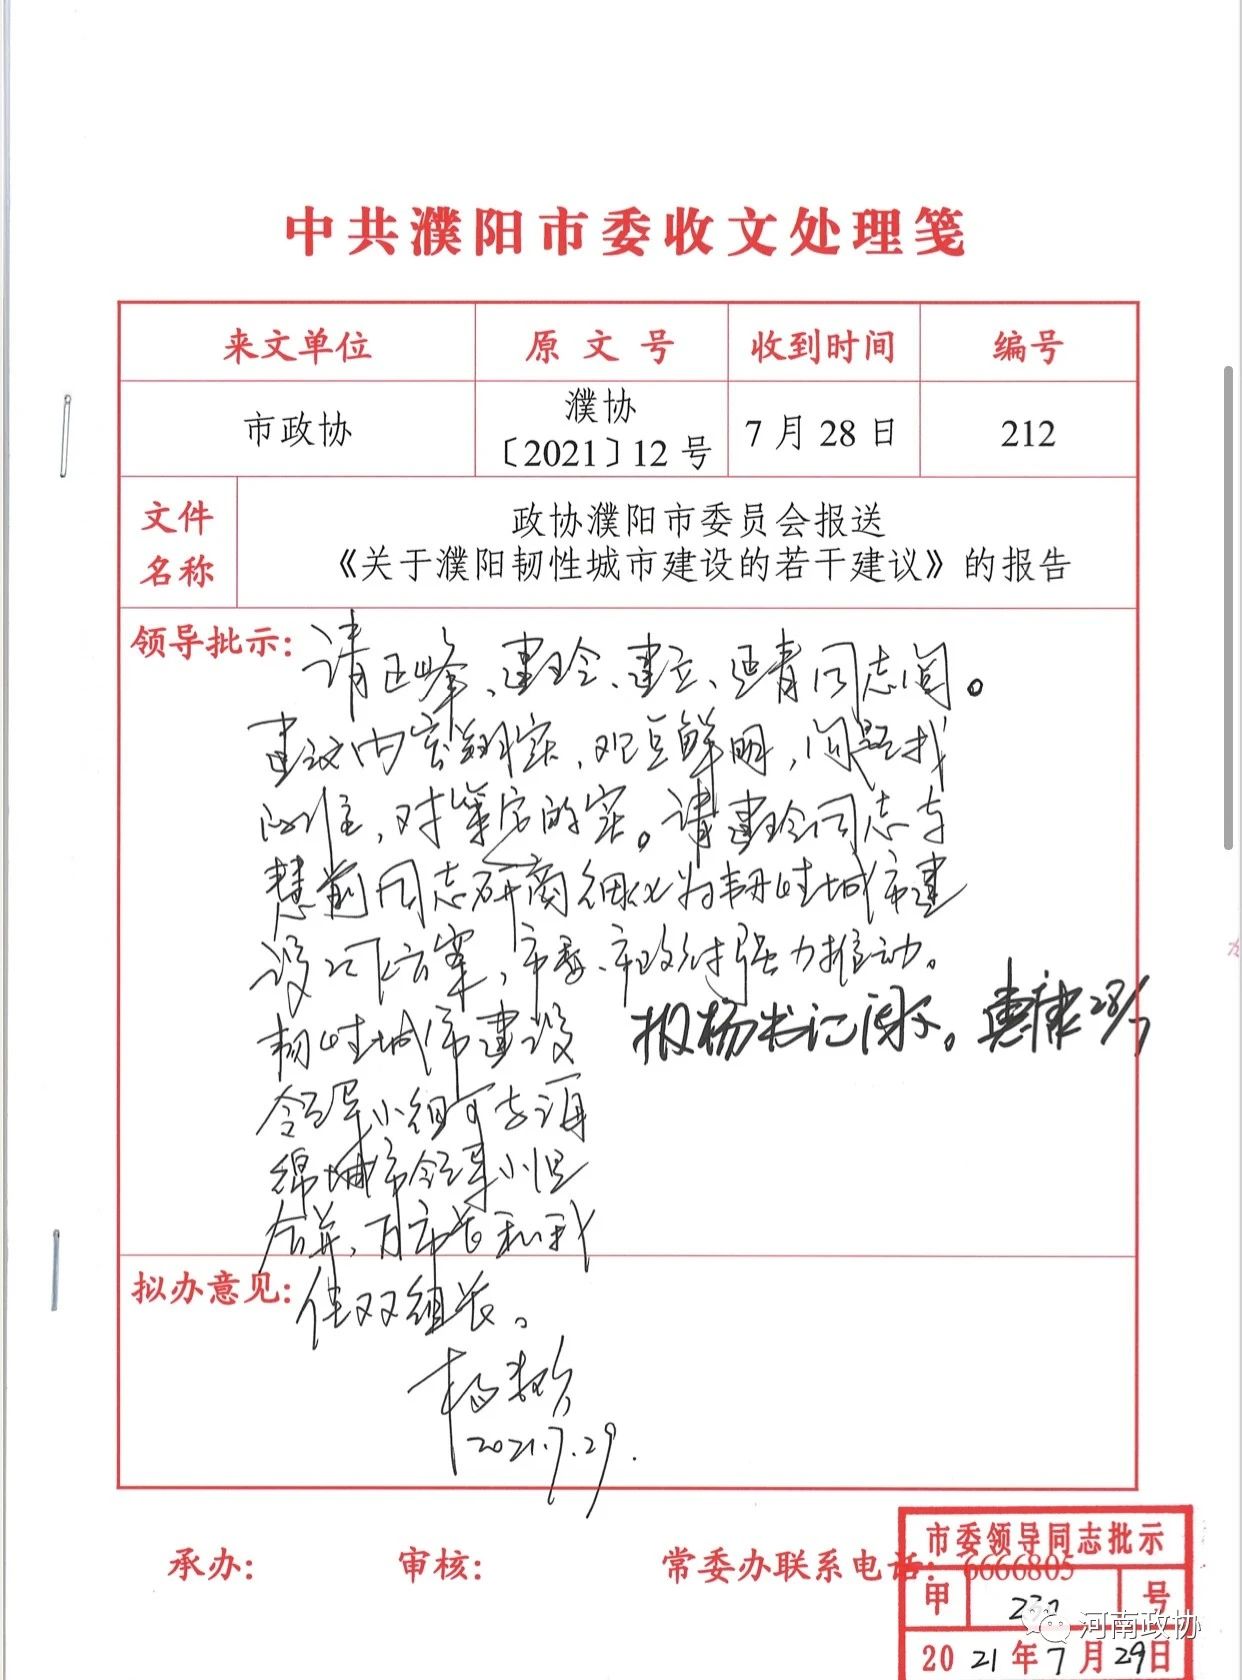 中共濮阳市委收文处理笺
来文单位 原文号 收到时间 编号
市政协 濮协〔2021〕12号 7月28日 212
文件名称 政协濮阳市委员会报送
《关于濮阳韧性城市建设的若干建议》的报告
领导批示:
请正峰、建玲、建立、进青同志阅。
建议内容翔实,观点鲜明,问题找
的准,对策定的实。请建玲同志与
慧前同志研商细化为韧性城市建
设工作方案,市委、市政府强力推动。
韧性城市建设
领导小组可与海
绵城市领导小组
合并,万市长和我
任双组长。
杨青玖
2021.7.29.
报杨书记阅示。 28/7
拟办意见:
承办: 审核: 常委办联系电话:6666805
市委领导同志批示
甲 号
2021年7月29日
河南政协